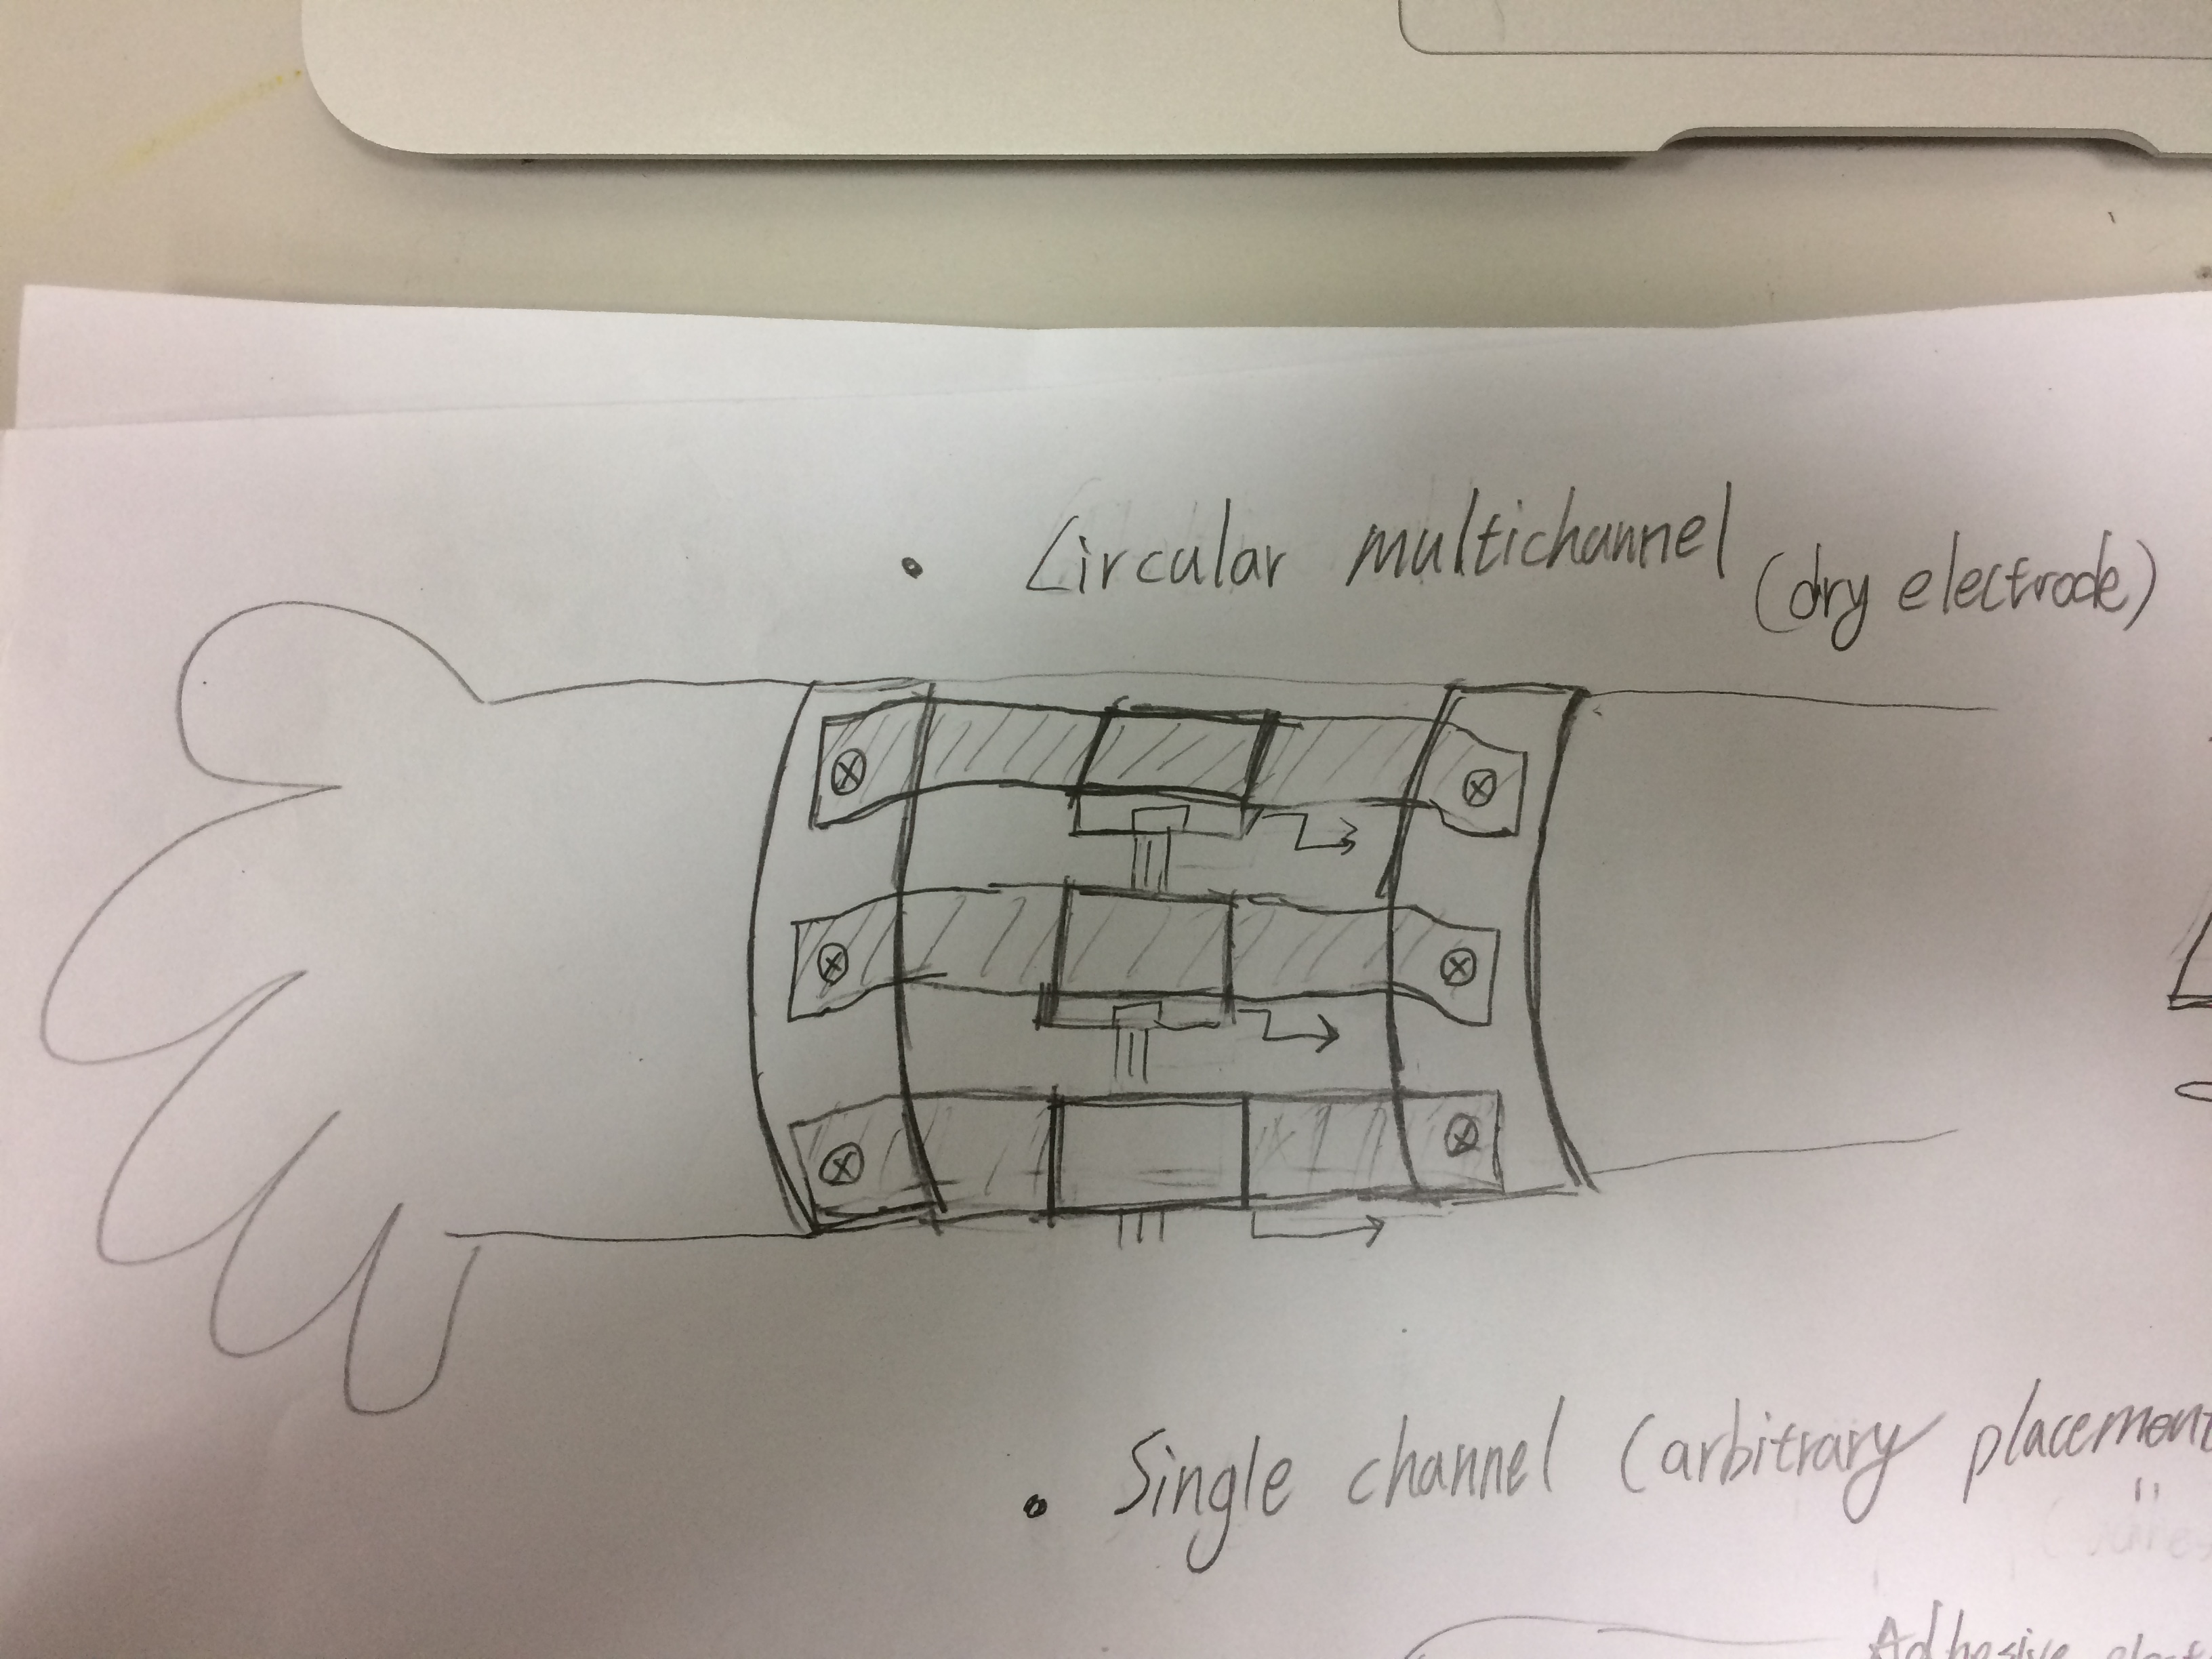 • Circular multichannel (dry electrode)
• Single channel (arbitrary placement
Adhesive